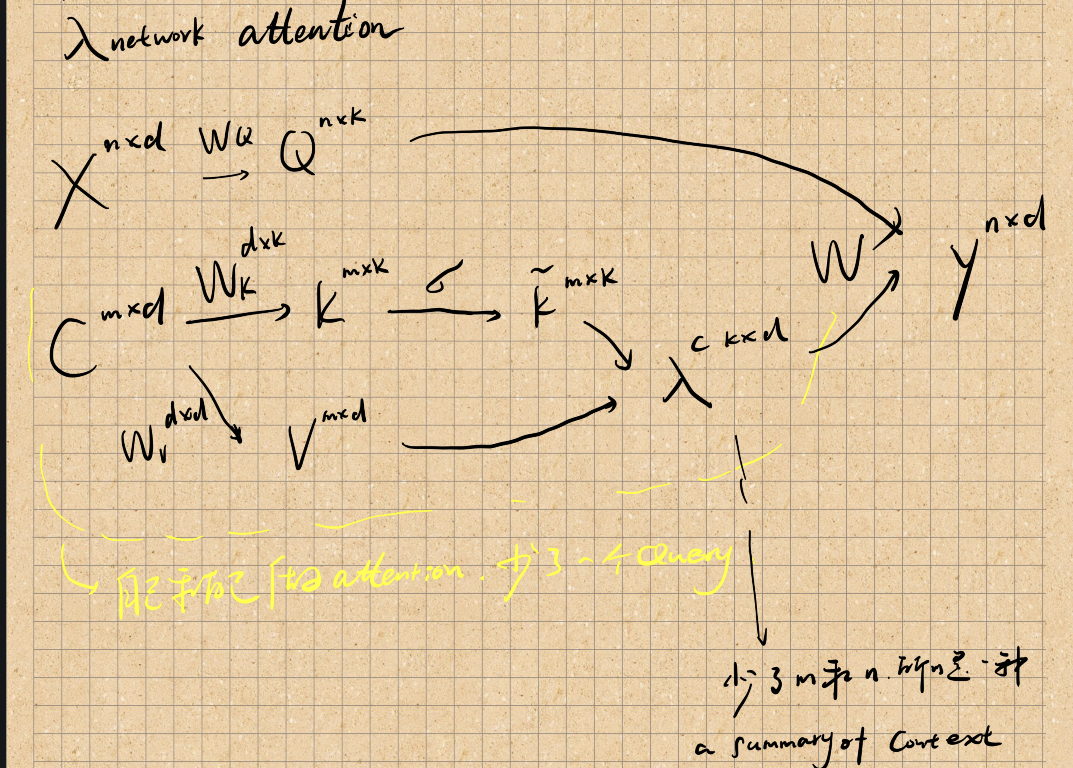 λ network attention
X^{n×d} WQ → Q^{n×k}
C^{m×d} W_K^{d×k} → K^{m×k} σ → k̃^{m×k}
W_V^{d×d} V^{m×d}
λ^{C k×d}
W y^{n×d}
自己和自己做attention.少了一个Query
少了m和n.所以是一种
a summary of Context